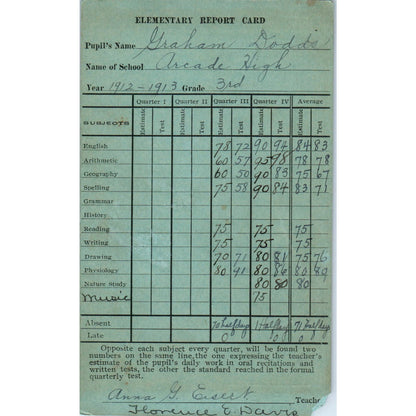 ELEMENTARY REPORT CARD
Pupil's Name Graham Dodds
Name of School Arcade High
Year 1912-1913 Grade 3rd
Quarter I Quarter II Quarter III Quarter IV Average
SUBJECTS Estimate Test Estimate Test Estimate Test Estimate Test Estimate Test
English 78 72 90 94 84 83
Arithmetic 60 57 95 98 78 78
Geography 60 50 90 83 75 67
Spelling 75 58 90 84 83 71
Grammar
History
Reading 75 75 75
Writing 75 75 75
Drawing 70 71 80 81 75 76
Physiology 80 91 80 86 80 89
Nature Study 80 80 80
Music 75
Absent 70 half day 1 Half day 71 Half day
Late 0 0 0 0
Opposite each subject every quarter, will be found two
numbers on the same line, the one expressing the teacher's
estimate of the pupil's daily work in oral recitations and
written tests, the other the standard reached in the formal
quarterly test.
Anna G. Eisert Teacher
Florence E. Davis